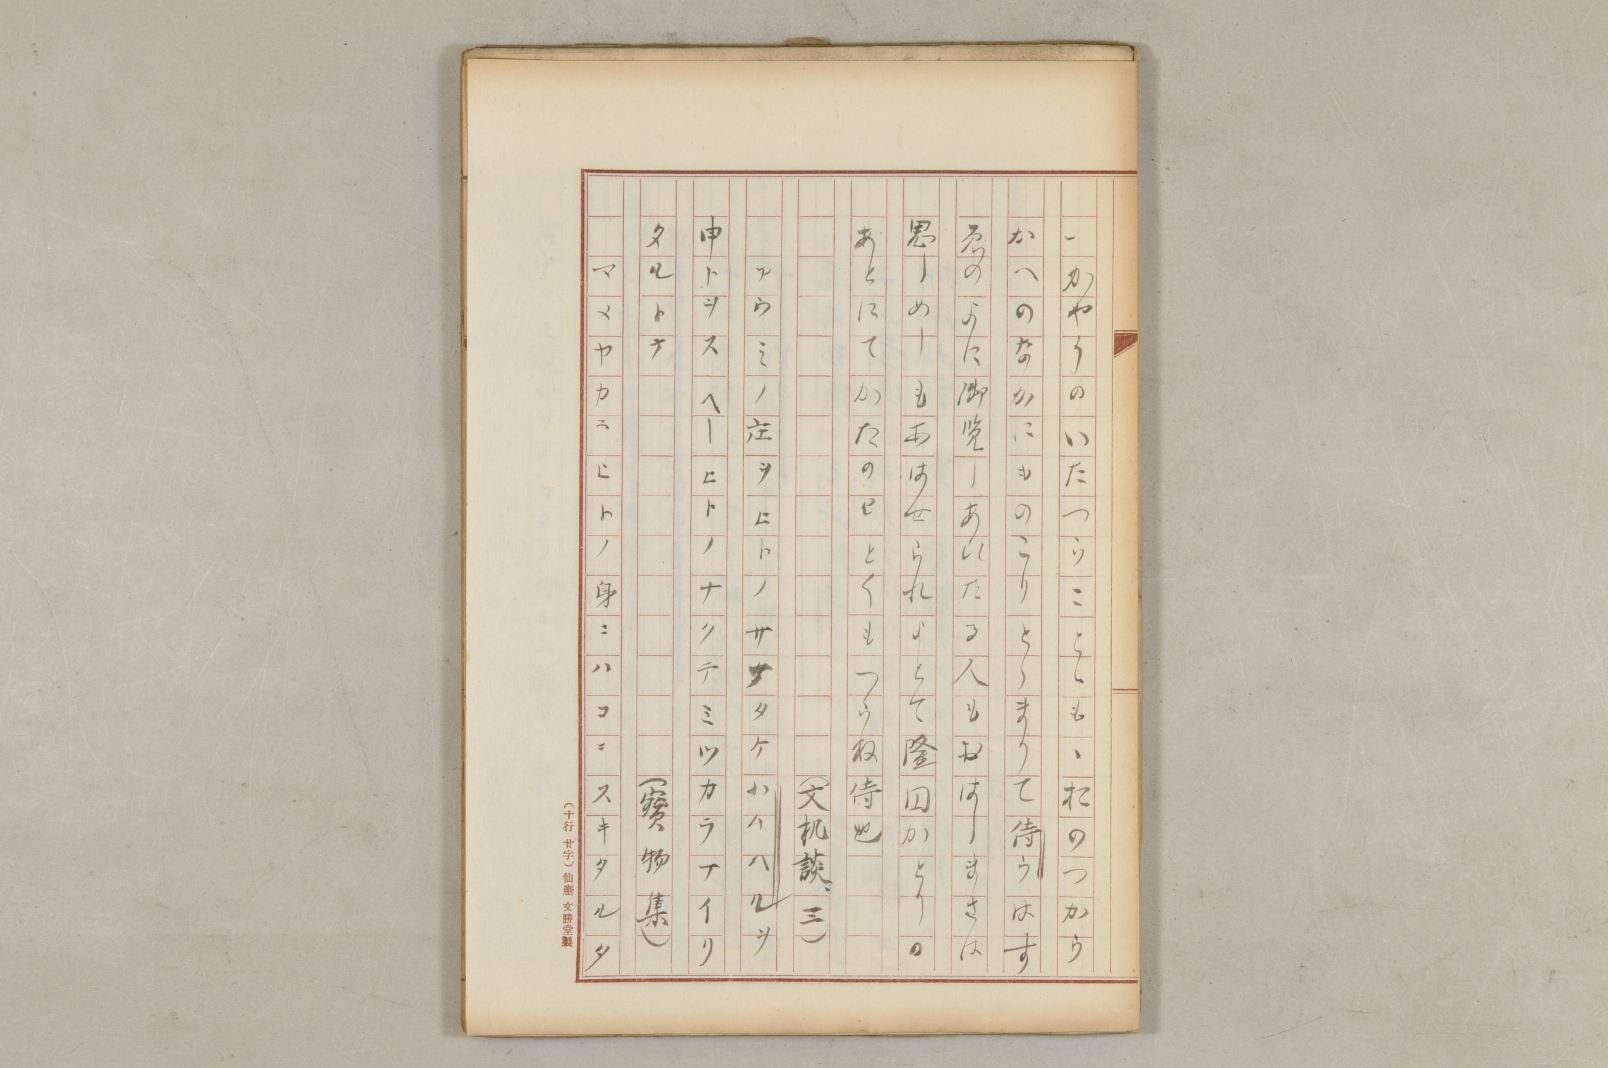 一かやうのいたつらことゝもゝおのつから
かへのなかにものこりとゝまりて侍らはす
ゑのよに御覧しあはたる人もおはしまさは
思しめしもあはせられよとて隆円かとりの
あとにてかたのことくもつら ね侍也
（文机談、三）
アウミノ庄ヲヒトノササタケハハハルヲ
申トヲスヘーヒトノナクテミツカラナイリ
タルトテ
（寳物集）
マメヤカニヒトノ身ニハコニスキタルタ
（十行廿字）仙臺文勝堂製